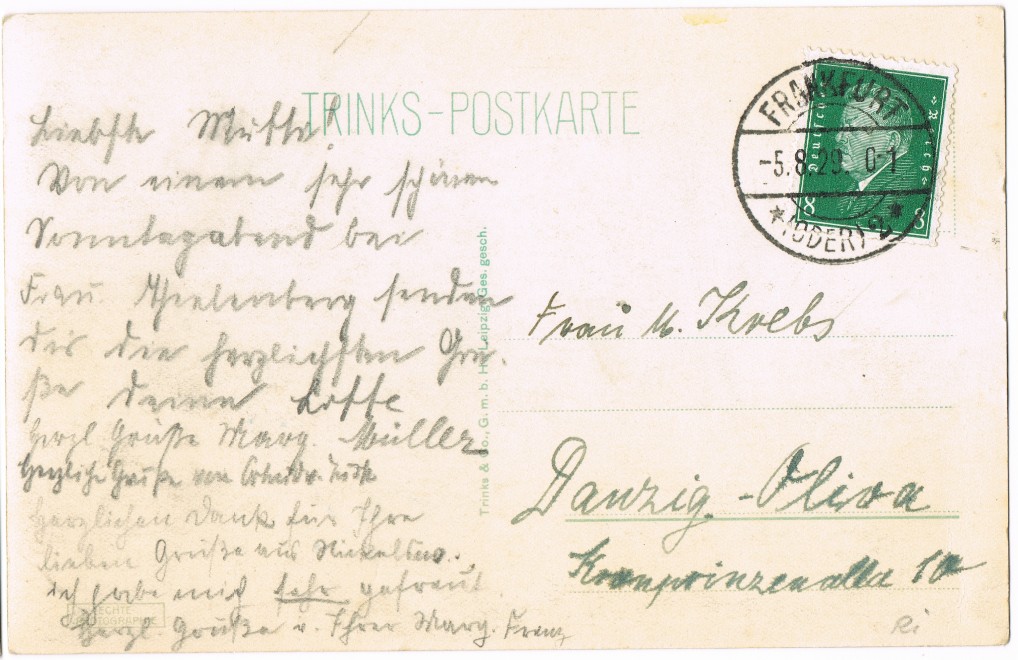 TRINKS-POSTKARTE
Liebste Mutti!
Von einem sehr schönen
Sonntagabend bei
Frau senden
dir die herzlichsten Grü-
ße deine Lotte
Herzl. Grüße Marg. Müller
Herzliche Grüße von
Herzlichen Dank für Ihre
lieben Grüße aus
ich habe mich sehr gefreut
Herzl. Grüße v. Ihrer Marg. Franz
ECHTE
PHOTOGRAPHIE
Trinks & Co., G. m. b. H., Leipzig. Ges. gesch.
FRANKFURT
-5.8.29. 0-1
* (ODER) 2 *
Deutsches Reich
8 8
Frau M. Krebs
Danzig-Oliva
Kronprinzenallee 10
Ri